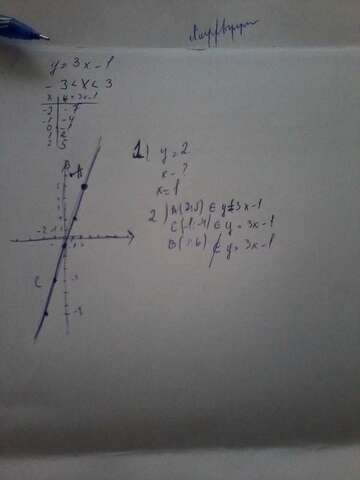 y = 3x - 1
- 3 < x < 3
x | y = 3x-1
-2 | -7
-1 | -4
0 | -1
1 | 2
2 | 5
1) y = 2
x - ?
x = 1
2) A(2;5) ∈ y=3x-1
C(-1;-4) ∈ y = 3x-1
∉ y = 3x-1
B
A
C